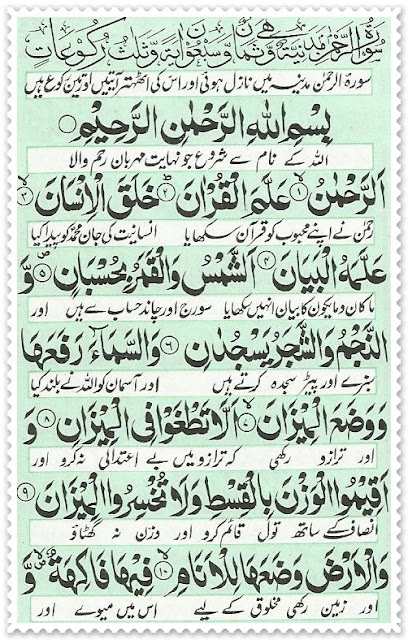 سُوْرَةُ الرَّحْمٰنِ مَدَنِيَّةٌ وَّهِيَ ثَمَانٌ وَّسَبْعُوْنَ اٰيَةً وَّثَلٰثُ رُكُوْعَاتٍ
سورۃ الرحمٰن مدینہ میں نازل ہوئی اور اس کی اٹھتر آیتیں اور تین رکوع ہیں
بِسْمِ اللّٰهِ الرَّحْمٰنِ الرَّحِيْمِ
اللہ کے نام سے شروع جو نہایت مہربان رحم والا
اَلرَّحْمٰنُ ۙ﴿۱﴾ عَلَّمَ الْقُرْاٰنَ ؕ﴿۲﴾ خَلَقَ الْاِنْسَانَ ۙ﴿۳﴾
رحمٰن نے اپنے محبوب کو قرآن سکھایا انسانیت کی جان محمد کو پیدا کیا
عَلَّمَهُ الْبَيَانَ ﴿۴﴾ اَلشَّمْسُ وَالْقَمَرُ بِحُسْبَانٍ ۪﴿۵﴾ وَّ
ما کان وما یکون کا بیان انہیں سکھایا سورج اور چاند حساب سے ہیں اور
النَّجْمُ وَالشَّجَرُ يَسْجُدٰنِ ﴿۶﴾ وَالسَّمَآءَ رَفَعَهَا
سبزے اور پیڑ سجدہ کرتے ہیں اور آسمان کو اللہ نے بلند کیا
وَوَضَعَ الْمِيْزَانَ ۙ﴿۷﴾ اَلَّا تَطْغَوْا فِى الْمِيْزَانِ ﴿۸﴾ وَ
اور ترازو رکھی کہ ترازو میں بے اعتدالی نہ کرو اور
اَقِيْمُوا الْوَزْنَ بِالْقِسْطِ وَلَا تُخْسِرُوا الْمِيْزَانَ ﴿۹﴾
انصاف کے ساتھ تول قائم کرو اور وزن نہ گھٹاؤ
وَالْاَرْضَ وَضَعَهَا لِلْاَنَامِ ۙ﴿۱۰﴾ فِيْهَا فَاكِهَةٌ ۪ۙ وَّ
اور زمین رکھی مخلوق کے لیے اس میں میوے اور